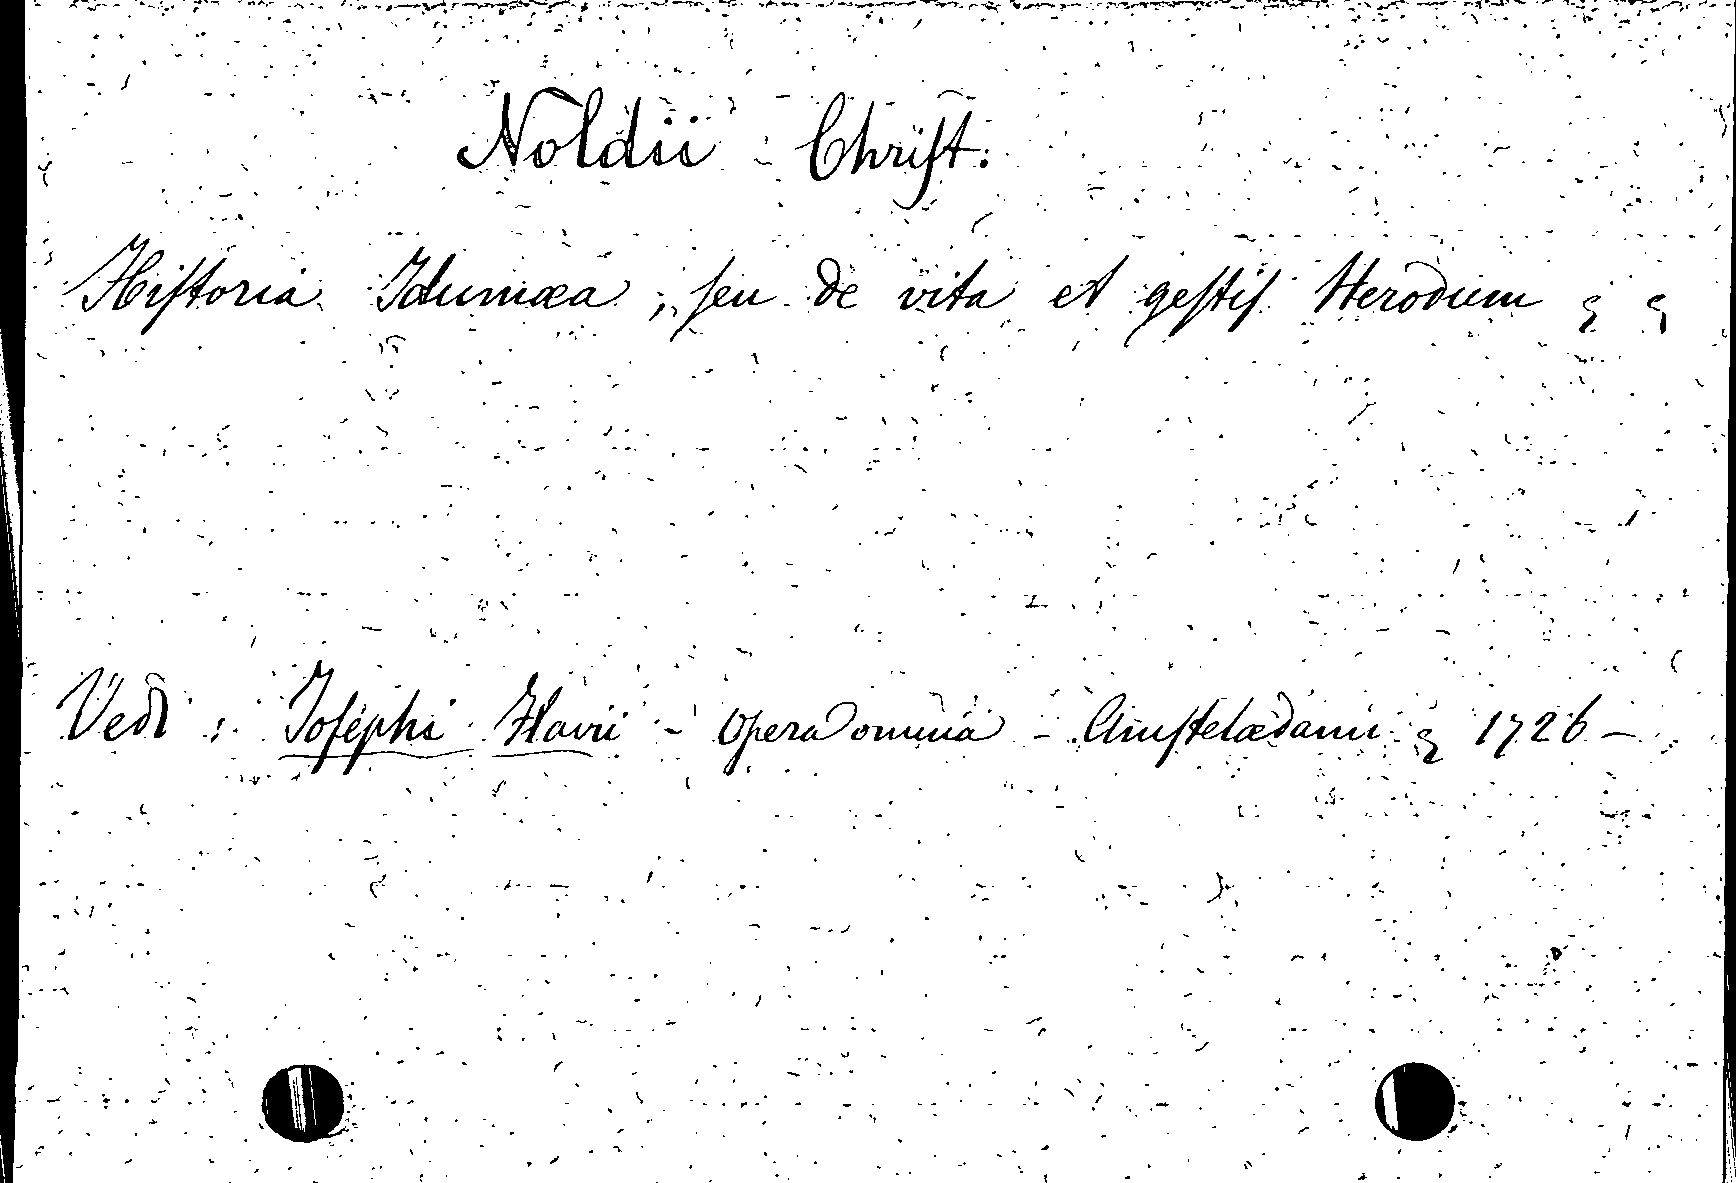 Noldii - Chriſt.
Hiſtoria Idumæa, ſeu de vita et geſtiſ Herodum
Vedi: Joſephi Flavii - Opera omnia - Amſtelædami 1726 -